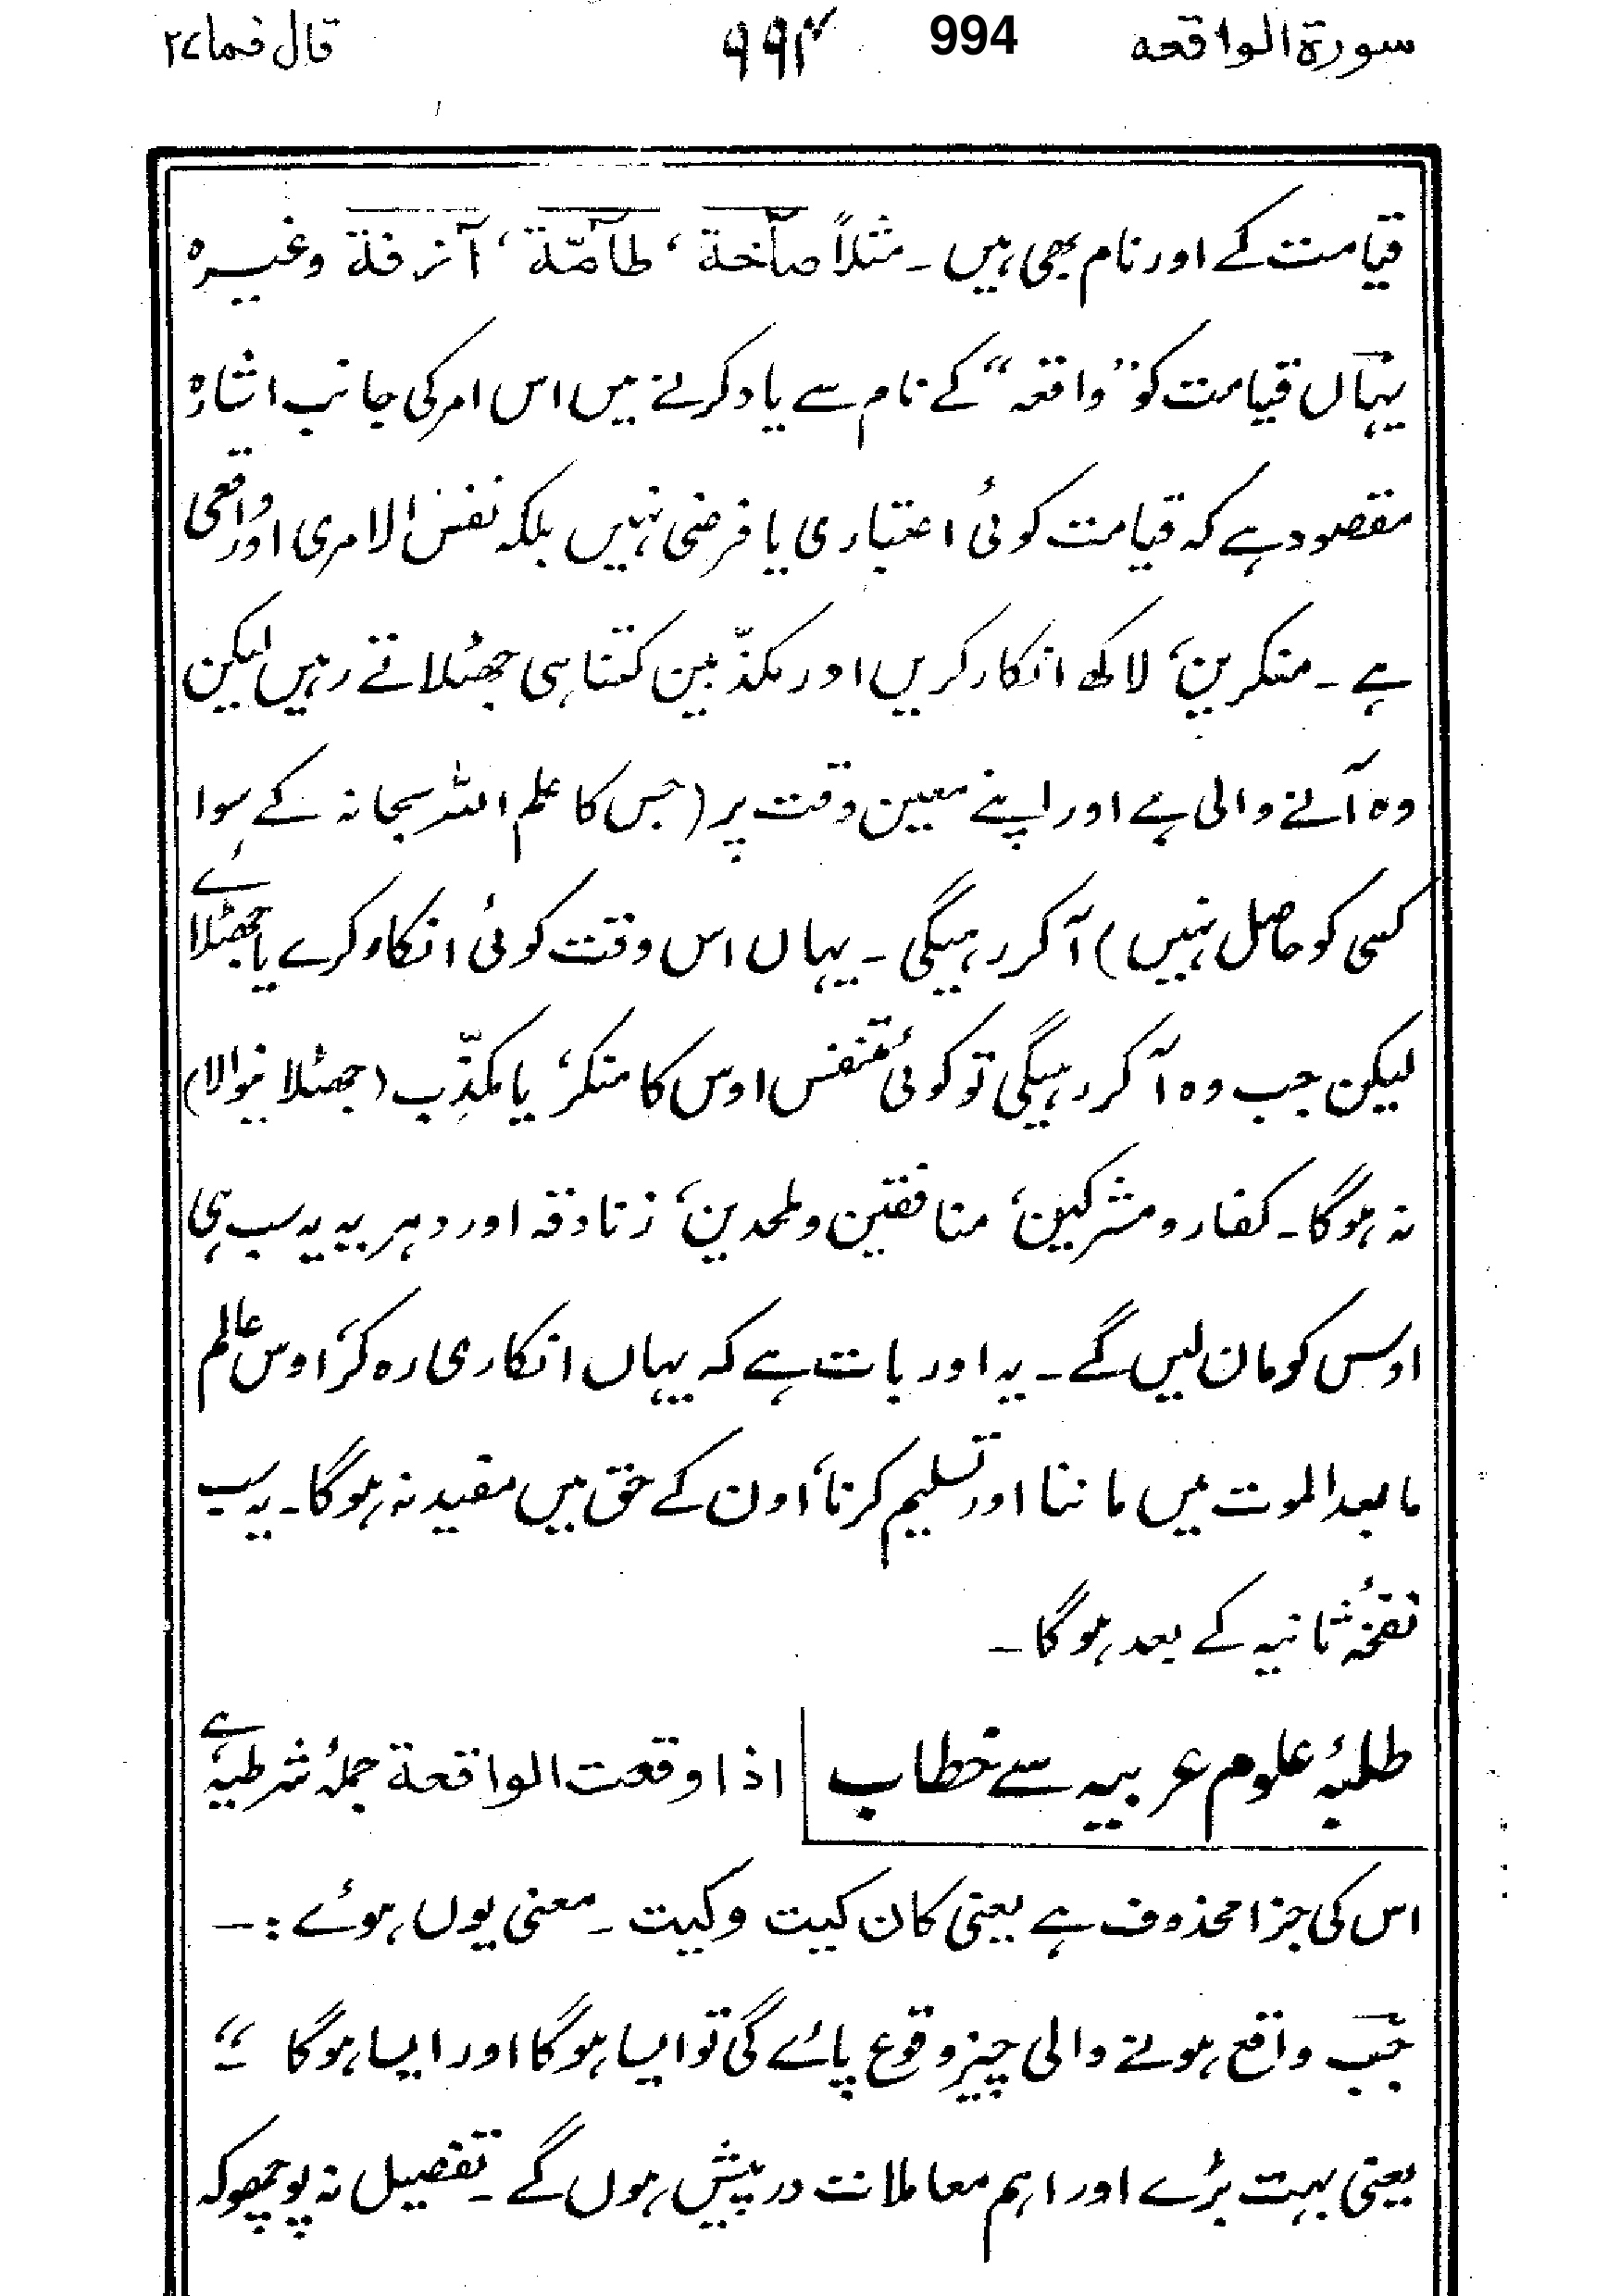 سورة الواقعہ 994 ۹۹۴ قال فما ۲۷
قیامت کے اور نام بھی ہیں ۔ مثلاً صآخة ‘ طآمّة ‘ آزفة وغیرہ
یہاں قیامت کو ’’واقعہ‘‘ کے نام سے یاد کرنے میں اس امر کی جانب اشارہ
مقصود ہے کہ قیامت کوئی اعتباری یا فرضی نہیں بلکہ نفس الامری اور واقعی
ہے ۔ منکرین‘ لاکھ انکار کریں اور مکذّبین کتنا ہی جھٹلاتے رہیں لیکن
وہ آنے والی ہے اور اپنے معین وقت پر (جس کا علم اللہ سبحانہ کے سوا
کسی کو حاصل نہیں) آکر رہیگی ۔ یہاں اس وقت کوئی انکار کرے یا جھٹلائے
لیکن جب وہ آکر رہیگی تو کوئی متنفس اوس کا منکر‘ یا مکذّب (جھٹلانیوالا)
نہ ہوگا ۔ کفار و مشرکین‘ منافقین و ملحدین‘ زنادقہ اور دہریہ یہ سب ہی
اوس کو مان لیں گے ۔ یہ اور بات ہے کہ یہاں انکاری رہ کر‘ اوس عالم
مابعد الموت میں ماننا اور تسلیم کرنا‘ اون کے حق میں مفید نہ ہوگا ۔ یہ سب
نفخۂ ثانیہ کے بعد ہوگا ۔
طلبۂ علوم عربیہ سے خطاب اذا وقعت الواقعة جملۂ شرطیہ ہے
اس کی جزا محذوف ہے یعنی کان کیت وکیت ۔ معنی یوں ہوئے :۔
جب واقع ہونے والی چیز وقوع پائے گی تو ایسا ہوگا اور ایسا ہوگا ‘‘۔
یعنی بہت بڑے اور اہم معاملات درپیش ہوں گے ۔ تفصیل نہ پوچھو کہ